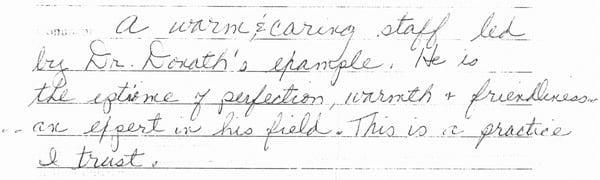 A warm & caring staff led
by Dr. Donath's example. He is
the eptiome of perfection, warmth + friendliness--
an expert in his field. This is a practice
I trust.